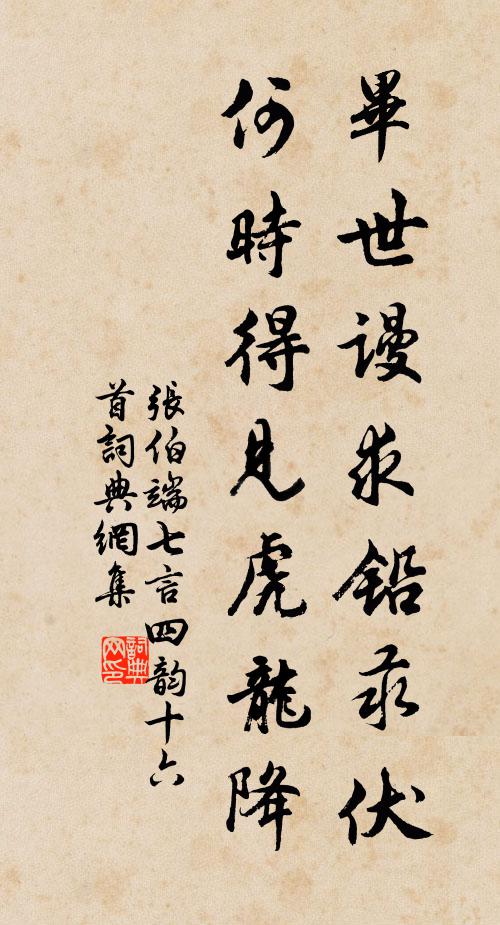 畢世謾求鉛汞伏
何時得見虎龍降
張伯端七言四韵十六
首詞典網集
詞典
网印